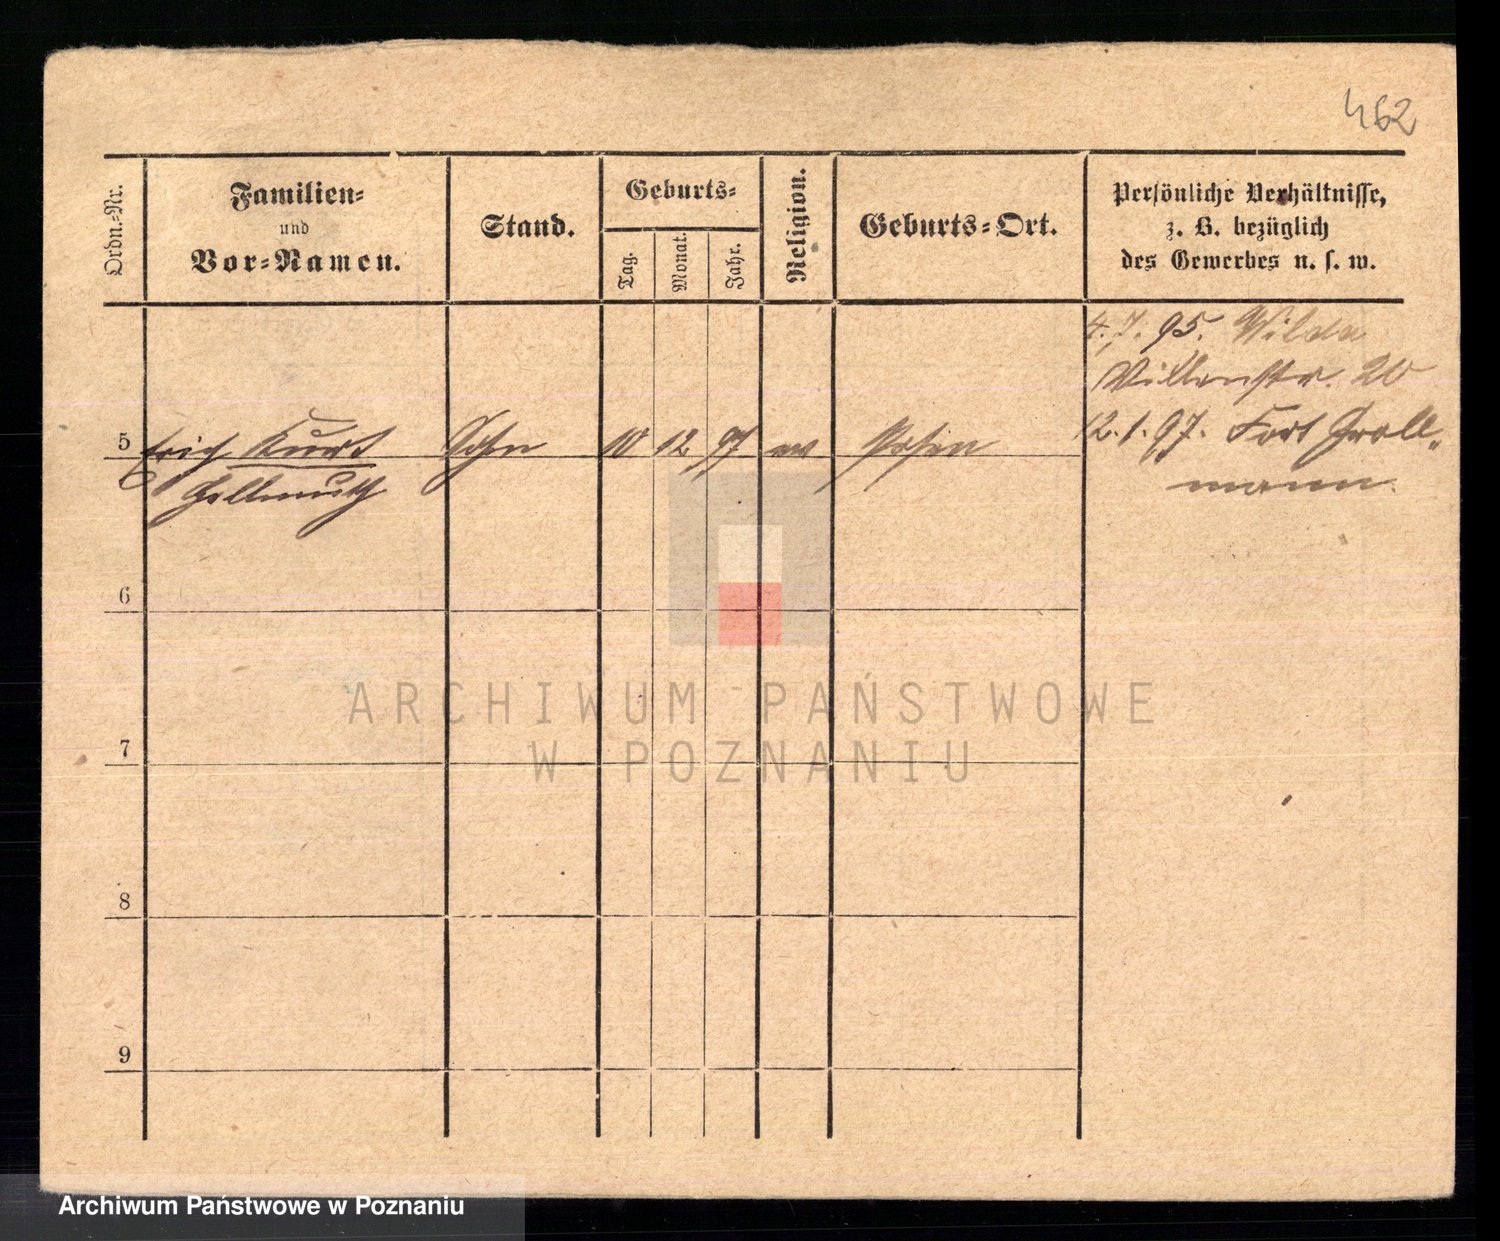 462
Ordn.-Nr.
Familien-
und
Vor-Namen.
Stand.
Geburts-
Tag.
Monat.
Jahr.
Religion.
Geburts-Ort.
Persönliche Verhältnisse,
z. B. bezüglich
des Gewerbes u. s. w.
4.7.95. Wilda
Villenstr. 20
5 Erich Kurt Sohn 10 12 97 ev Posen 12.1.97. Fort Groll-
Hellmuth mann.
6
7
8
9
ARCHIWUM PAŃSTWOWE
W POZNANIU
Archiwum Państwowe w Poznaniu